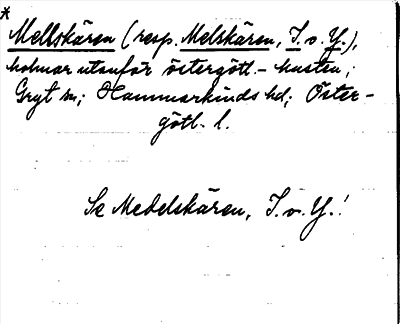 *
Mellskären (resp. Melskären, I. o. Y.),
holmar utanför östergötl.-kusten;
Gryt sn; Hammarkinds hd; Öster-
götl. l.
Se Medelskären, I. o. Y.!